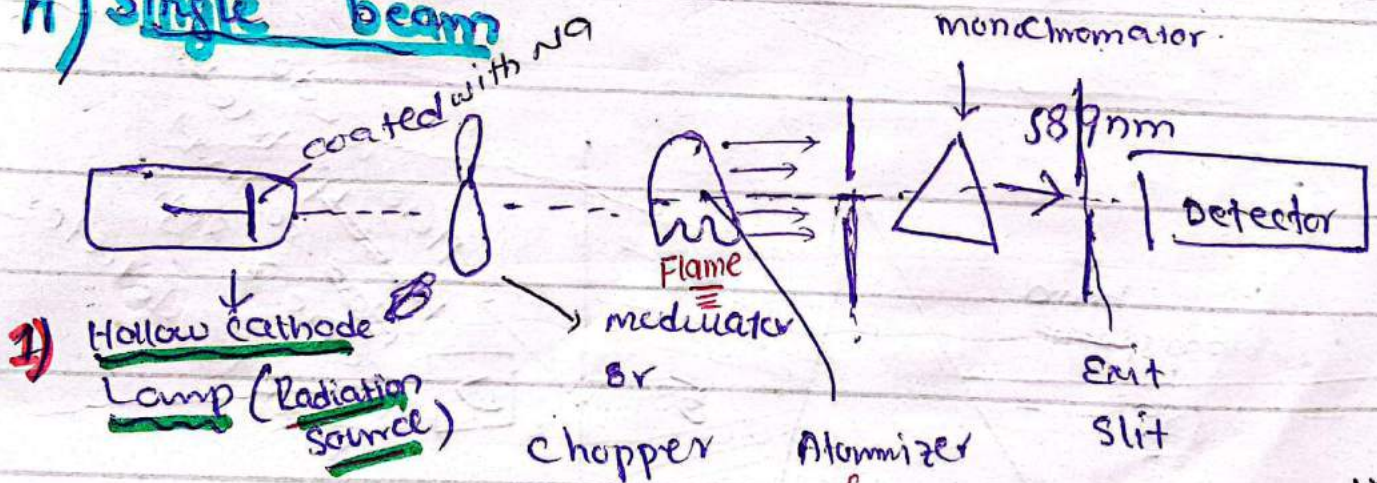 A) Single beam
monochromator.
coated with Na
589nm
Detector
Flame
1) Hollow Cathode
Lamp (Radiation
Source)
modulator
or
Chopper
Atommizer
Exit
Slit